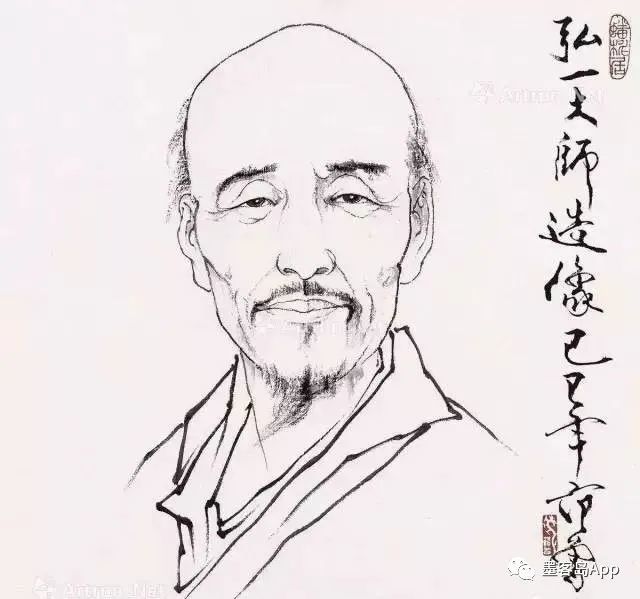 弘一大師造像己巳年范曾
Artron.Net
Artron.Net
墨客岛App